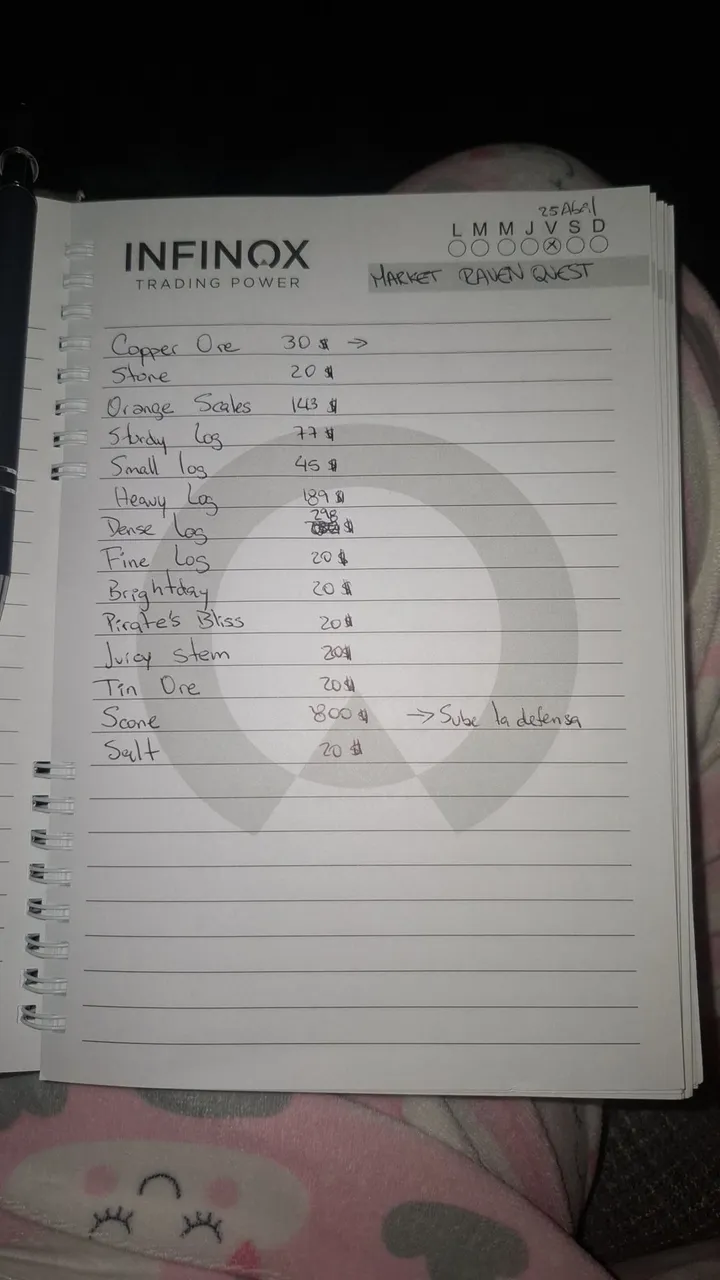 25 Abril
L M M J V S D
INFINOX
TRADING POWER
MARKET RAVEN QUEST
Copper Ore 30 $ →
Stone 20 $
Orange Scales 143 $
Sturdy Log 77 $
Small log 45 $
Heavy Log 189 $
Dense Log 298 $
Fine Log 20 $
Brightday 20 $
Pirate's Bliss 20 $
Juicy stem 20 $
Tin Ore 20 $
Scone 800 $ → Sube la defensa
Salt 20 $